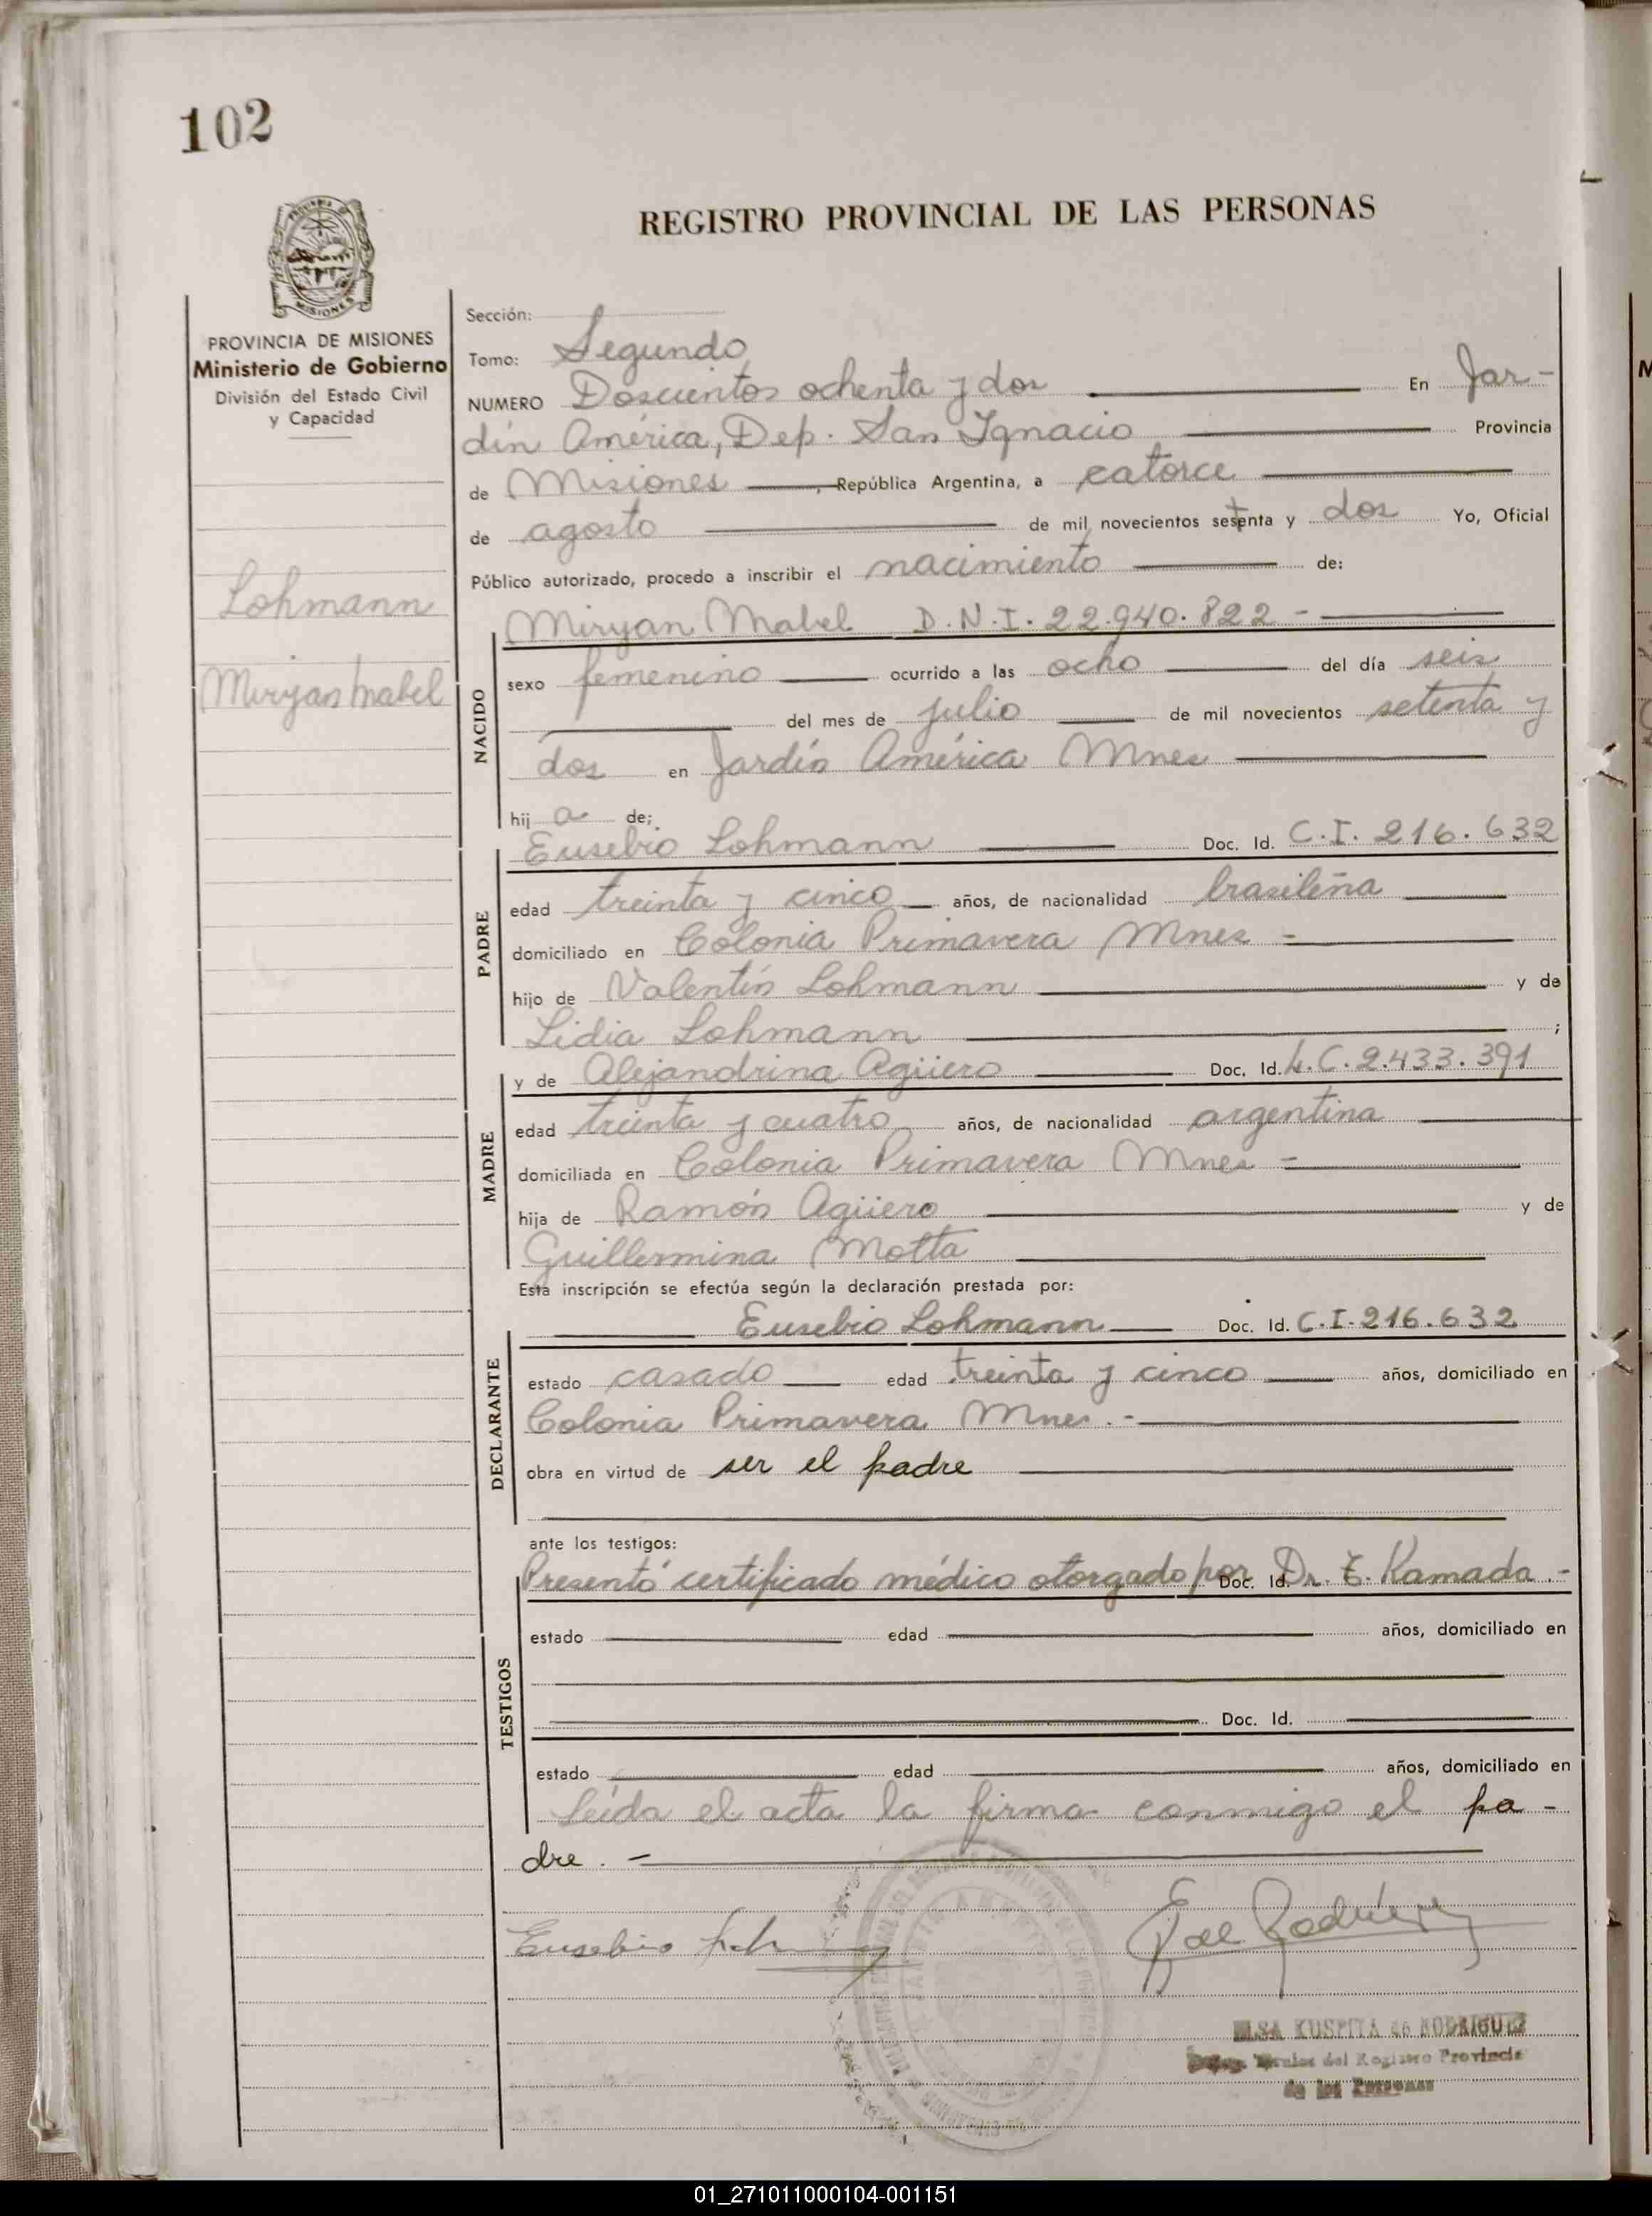 102
REGISTRO PROVINCIAL DE LAS PERSONAS
PROVINCIA DE MISIONES
Ministerio de Gobierno
División del Estado Civil
y Capacidad
Lohmann
Miryan Mabel
Sección:
Tomo: Segundo
NUMERO Doscientos ochenta y dos En Jar-
dín América, Dep. San Ignacio Provincia
de Misiones, República Argentina, a catorce
de agosto de mil novecientos setenta y dos Yo, Oficial
Público autorizado, procedo a inscribir el nacimiento de:
Miryan Mabel D.N.I. 22.940.822 -
NACIDO
sexo femenino ocurrido a las ocho del día seis
del mes de julio de mil novecientos setenta y
dos en Jardín América Mnes
hij a de;
Eusebio Lohmann Doc. Id. C.I. 216.632
PADRE
edad treinta y cinco años, de nacionalidad brasileña
domiciliado en Colonia Primavera Mnes -
hijo de Valentín Lohmann y de
Lidia Lohmann ;
y de Alejandrina Agüero Doc. Id. L.C. 2.433.391
MADRE
edad treinta y cuatro años, de nacionalidad argentina
domiciliada en Colonia Primavera Mnes -
hija de Ramón Agüero y de
Guillermina Motta
Esta inscripción se efectúa según la declaración prestada por:
Eusebio Lohmann Doc. Id. C.I. 216.632
DECLARANTE
estado casado edad treinta y cinco años, domiciliado en
Colonia Primavera Mnes. -
obra en virtud de ser el padre
ante los testigos:
Presentó certificado médico otorgado por Doc. Id. Dr. E. Kamada. -
TESTIGOS
estado edad años, domiciliado en
Doc. Id.
estado edad años, domiciliado en
Leída el acta la firma conmigo el pa-
dre. -
Eusebio
ELSA KUSPITA de RODRIGUEZ
del Registro Provincia
de las Personas
01_271011000104-001151